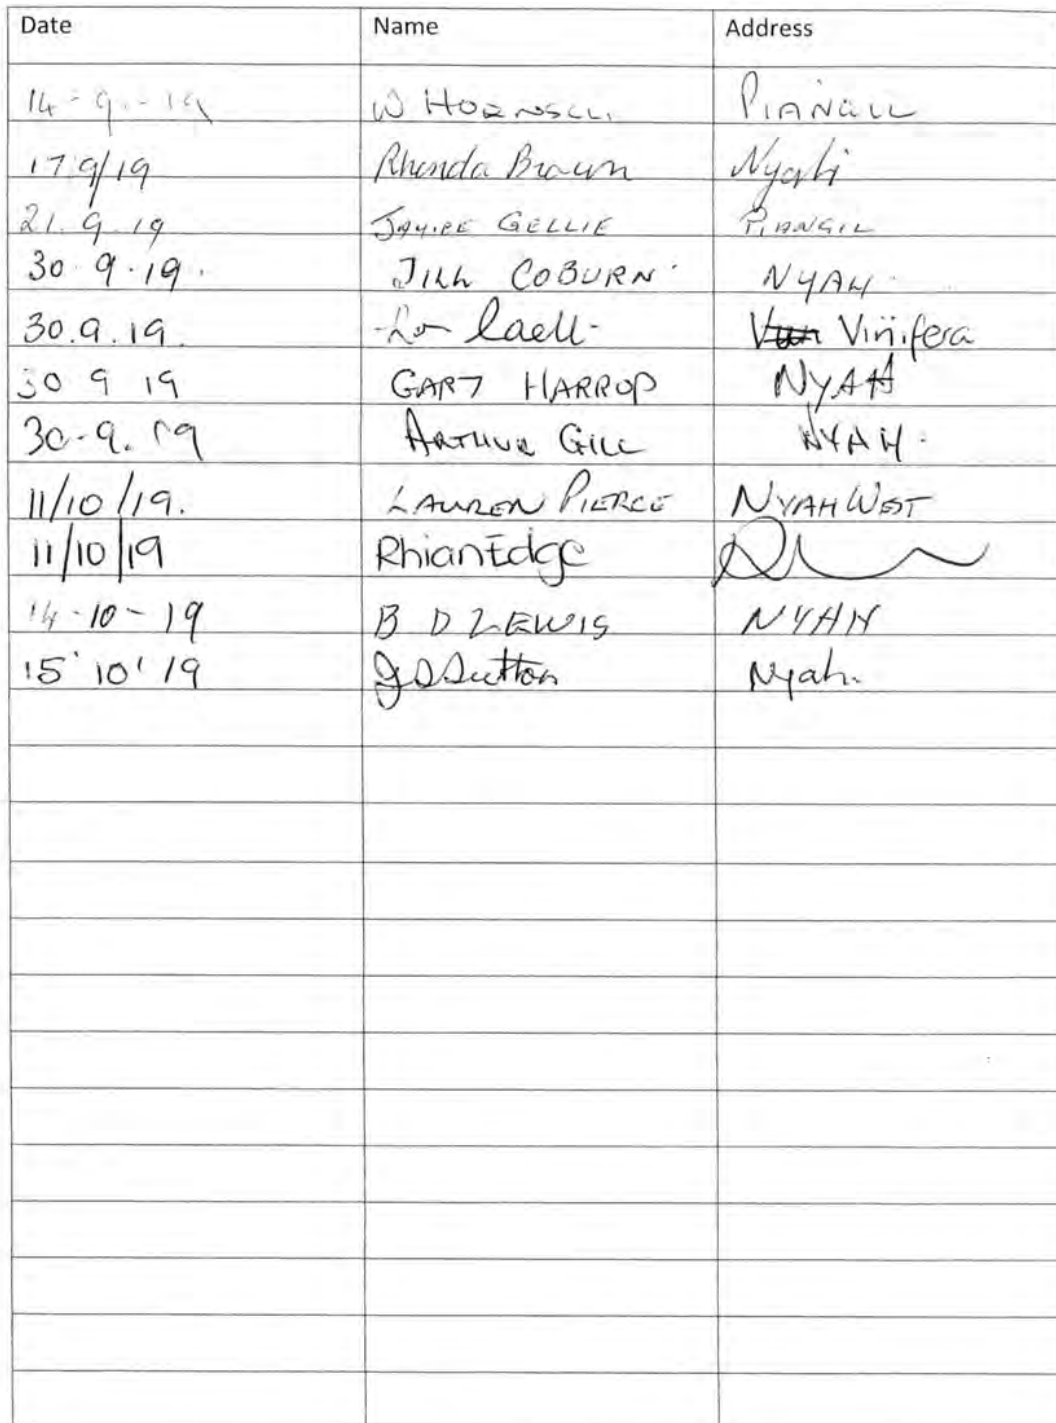 Date Name Address
14-9.-19 W PIANGIL
17.9/19 Rhonda Brown
21.9.19 GELLIE PIANGIL
30.9.19. JILL COBURN NYAH.
30.9.19. Vinifera
30 9 19 GARY HARROP NYAH
30-9.19 ARTHUR GILL NYAH.
11/10/19. LAUREN PIERCE NYAH WEST
11/10/19 Rhian Edge
14-10-19 B D LEWIS NYAH
15'10'19 Sutton Nyah.